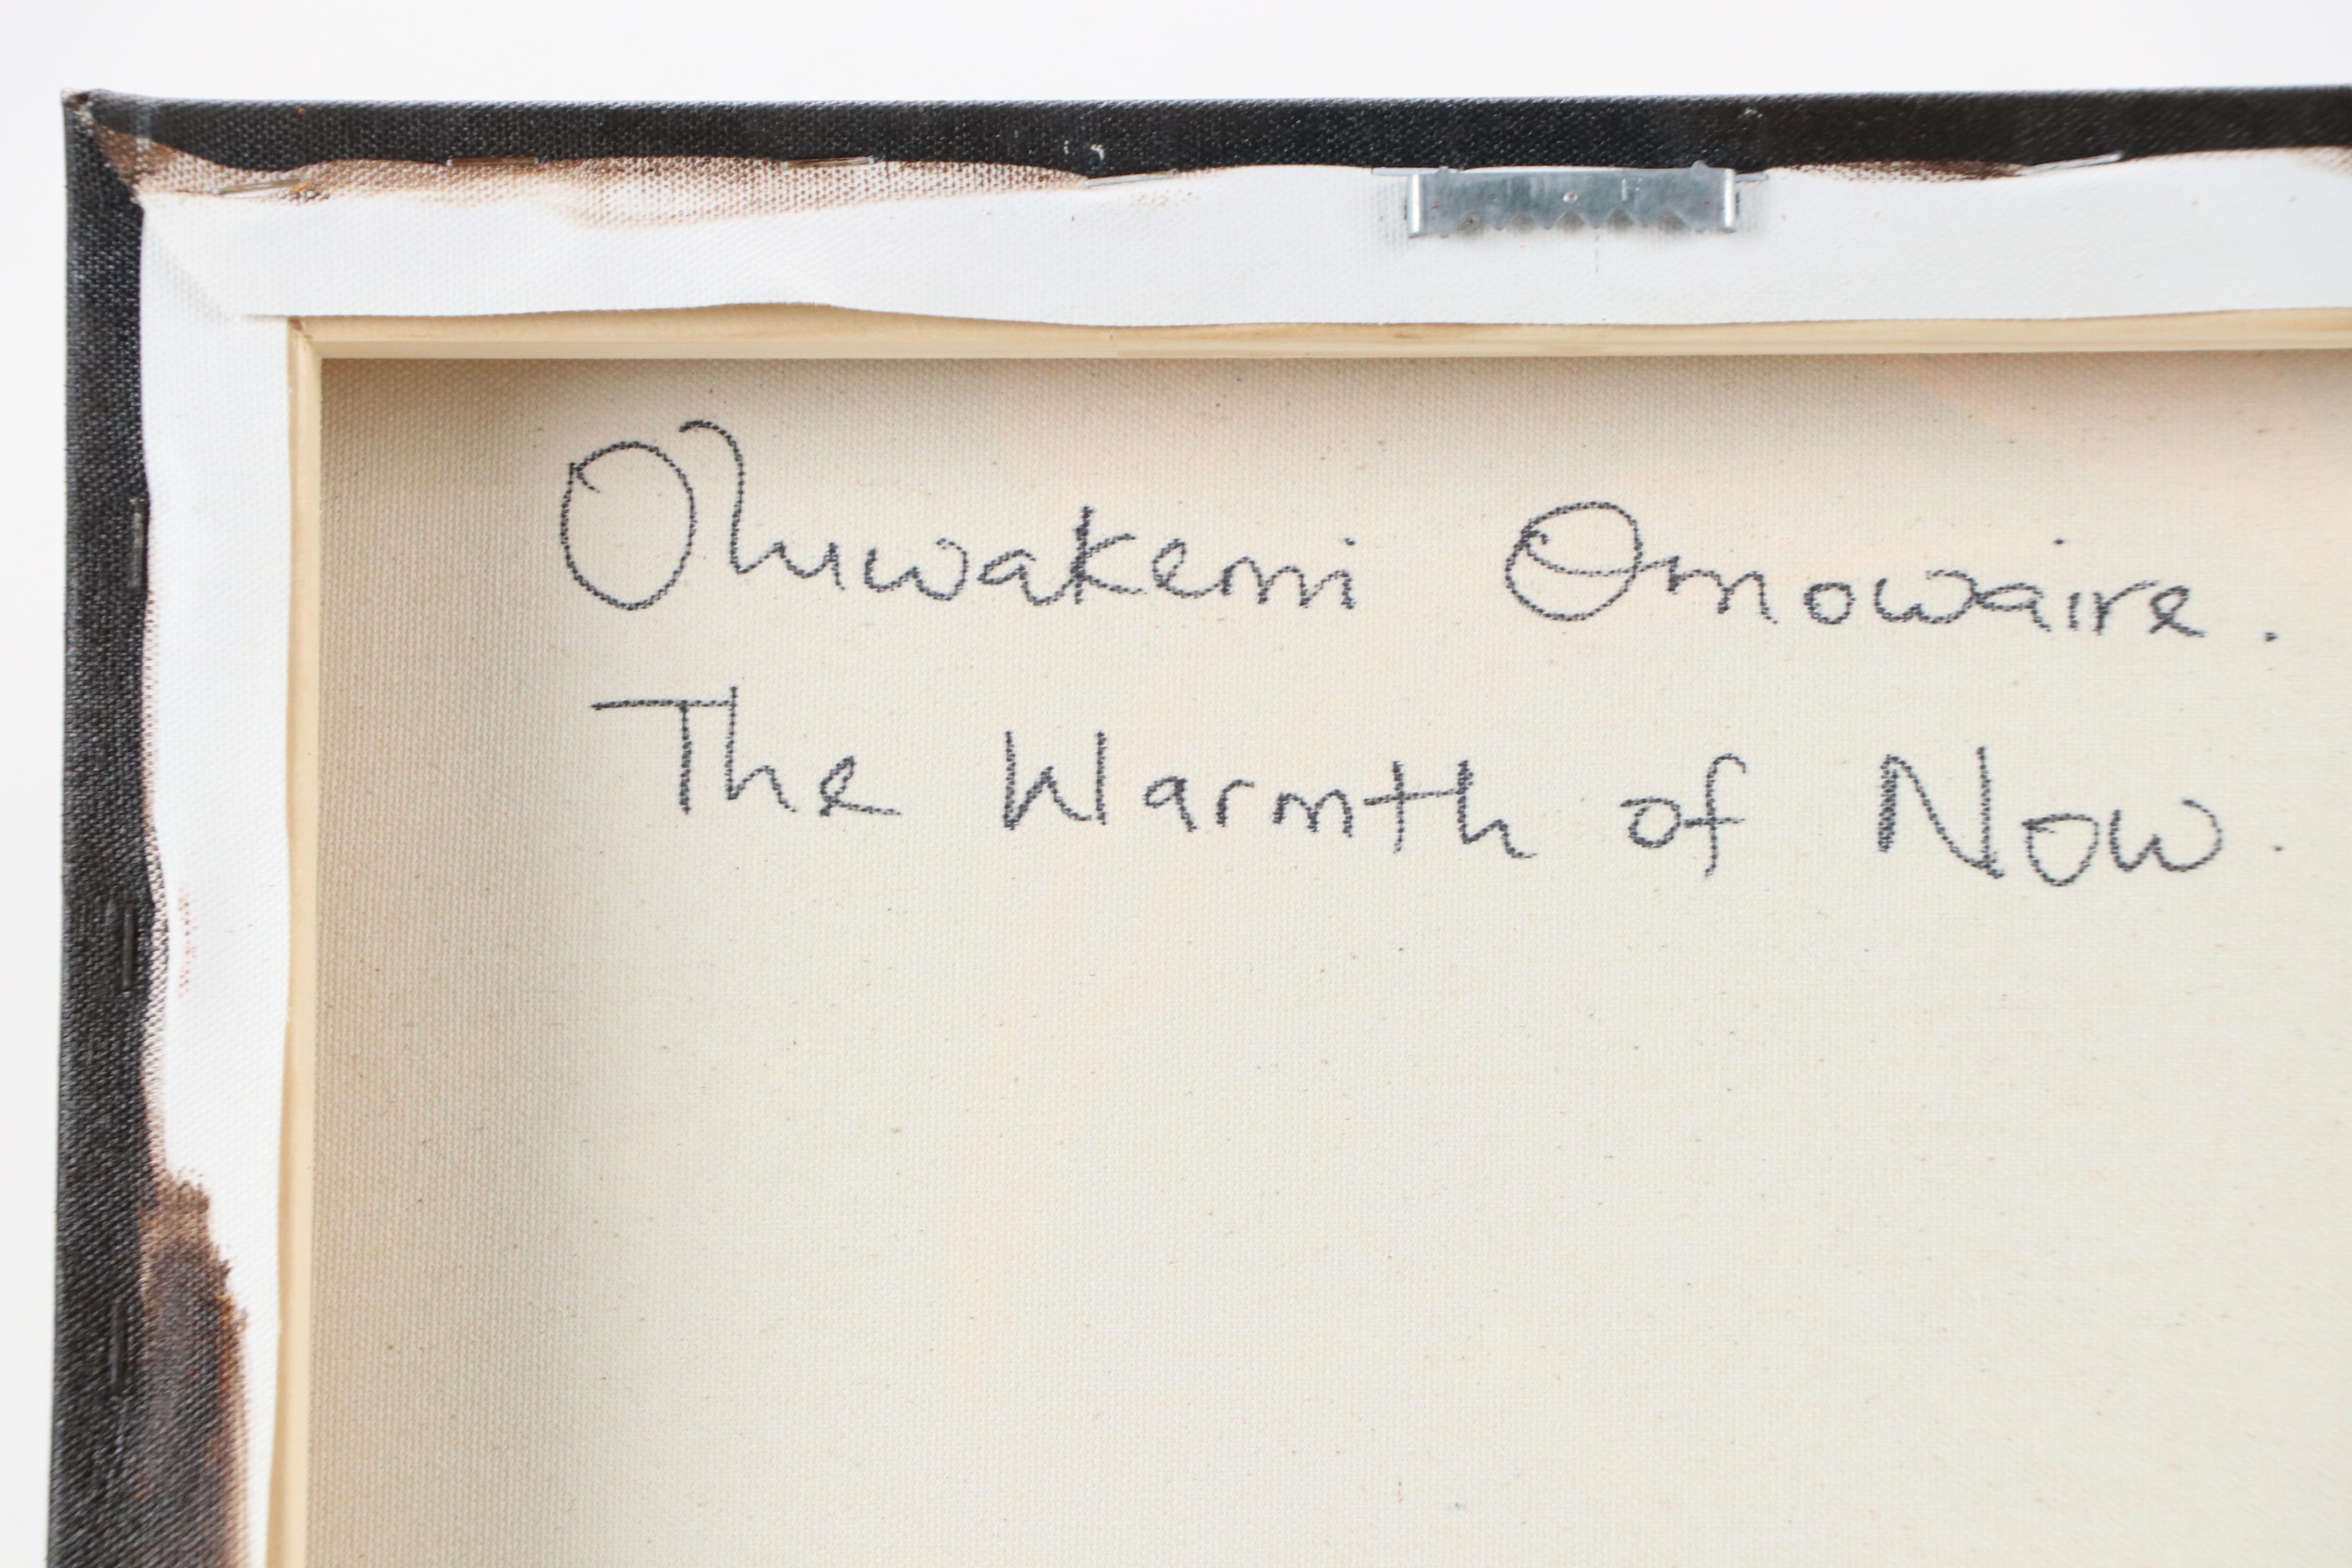 Oluwakemi Omowaire.
The Warmth of Now.